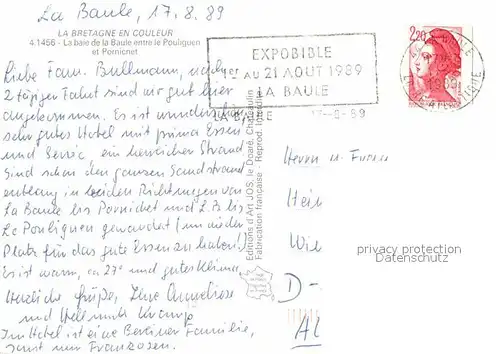 La Baule, 17.8.89
LA BRETAGNE EN COULEUR
4.1456 - La baie de la Baule entre le Pouliguen
et Pornichet
EXPOBIBLE
1er AU 21 AOUT 1989
LA BAULE
LA BAULE 17-8-89
2,20
Liebe Fam. Bullmann, nach
2 tägiger Fahrt sind wir gut hier
angekommen. Es ist wunderschön
sehr gutes Hotel mit prima Essen
und Servic, ein herrlicher Strand
Sind schon den ganzen Sandstrand
entlang in beiden Richtungen von
La Baule bis Pornichet und z.T. bis
Le Pouliguen gewandert (um wieder
Platz für das gute Essen zu haben!)
Es ist warm, ca 27° und gutes Klima.
Herzliche Grüße, Ihre
und Hellmuth
Im Hotel ist eine Berliner Familie,
sonst nur Franzosen.
Editions d'Art JOS, le Doaré, Châteaulin
Fabrication française - Reprod. Interdite
Herrn u. Frau
privacy protection
Datenschutz
D-